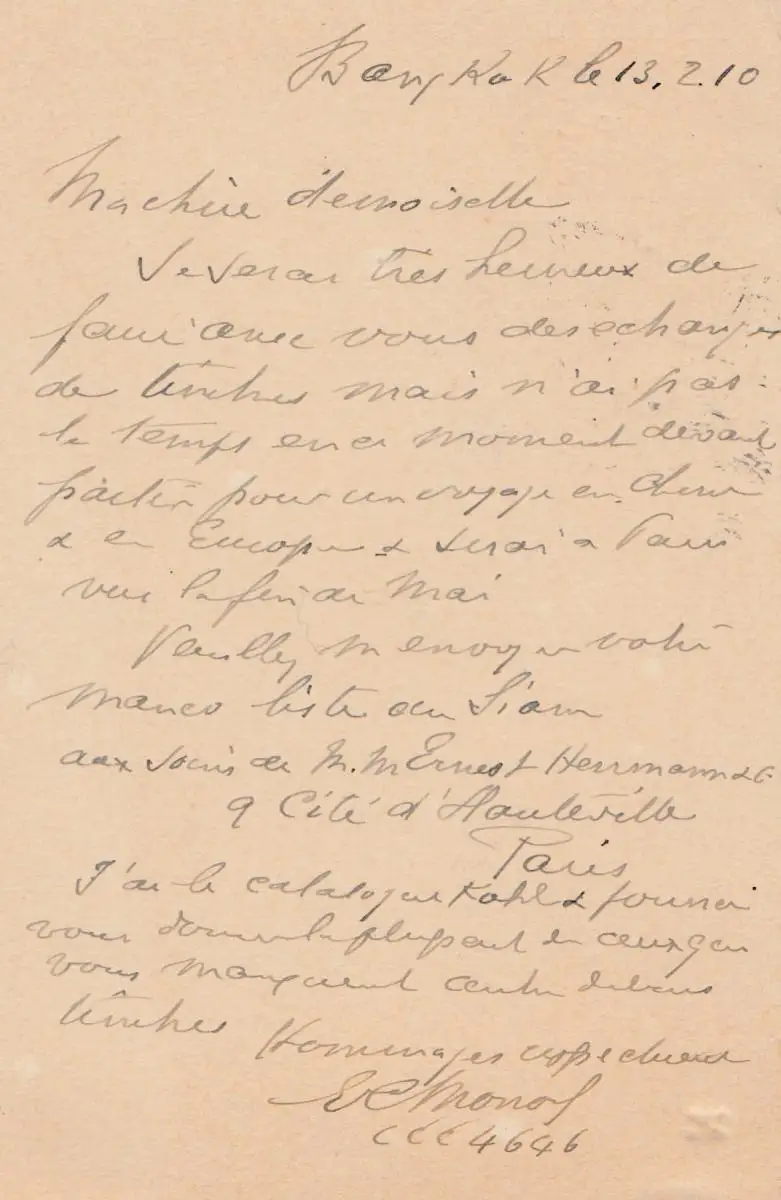 Bangkok le 13.2.10
Ma chère demoiselle
Je serai très heureux de
faire avec vous des echanges
de timbres mais n'ai pas
le temps en ce moment devant
partir pour un voyage en Chine
& en Europe & serai a Paris
vers la fin de Mai
Veuillez m'envoyer votre
manco liste du Siam
aux soins de M.M Ernest Herrmann & C
9 Cité d'Hauteville
Paris
J'ai le catalogue Kohl & pourrai
vous donner la plupart de ceux qui
vous manquent contre de bons
timbres
Hommages respectueux
E C Monod
CCC 4646